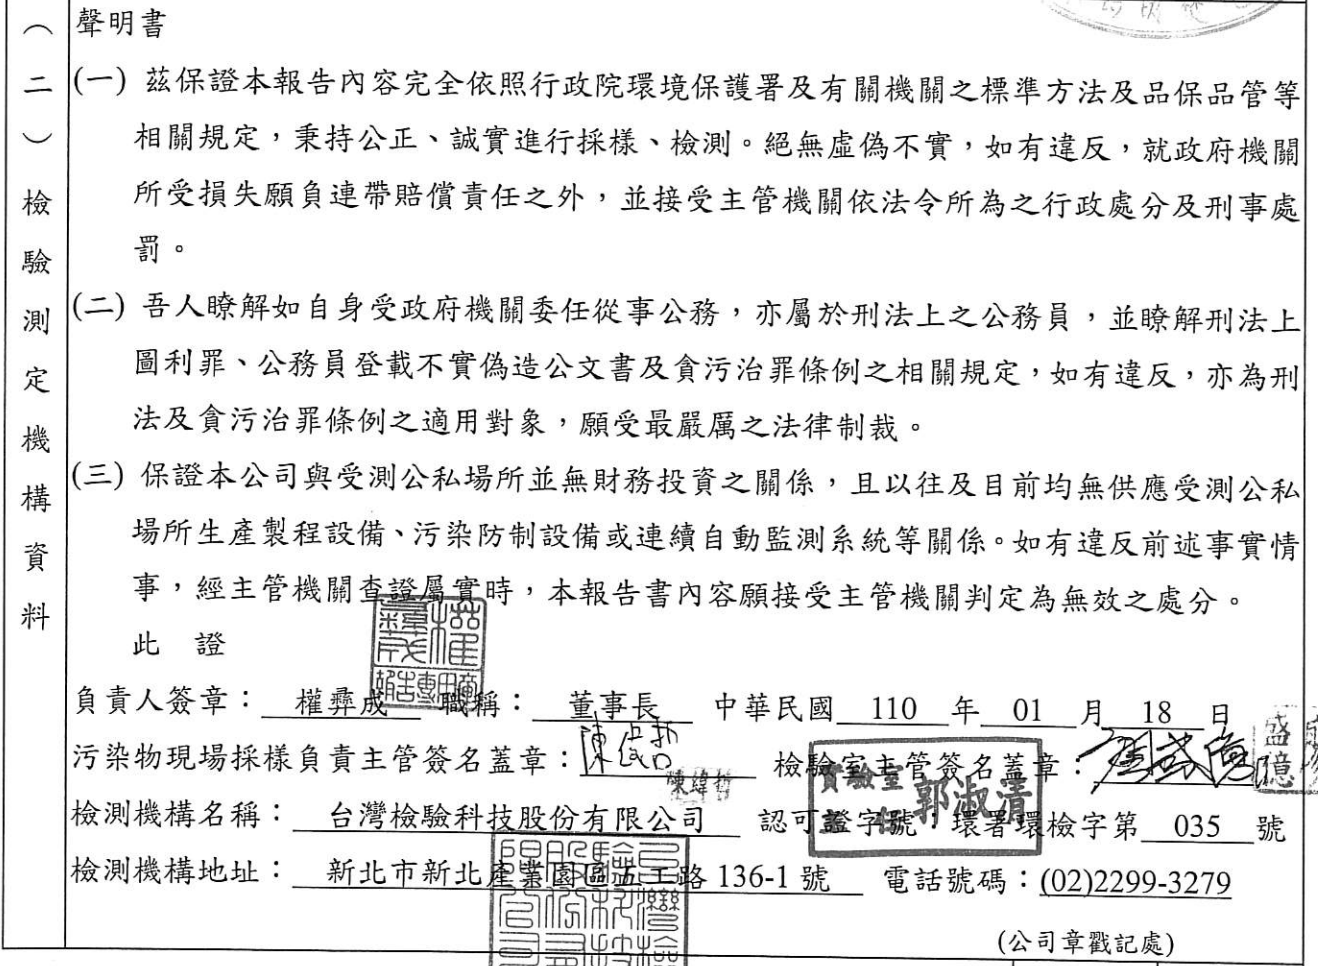 (二)檢驗測定機構資料
聲明書
(一) 茲保證本報告內容完全依照行政院環境保護署及有關機關之標準方法及品保品管等
相關規定，秉持公正、誠實進行採樣、檢測。絕無虛偽不實，如有違反，就政府機關
所受損失願負連帶賠償責任之外，並接受主管機關依法令所為之行政處分及刑事處
罰。
(二) 吾人瞭解如自身受政府機關委任從事公務，亦屬於刑法上之公務員，並瞭解刑法上
圖利罪、公務員登載不實偽造公文書及貪污治罪條例之相關規定，如有違反，亦為刑
法及貪污治罪條例之適用對象，願受最嚴厲之法律制裁。
(三) 保證本公司與受測公私場所並無財務投資之關係，且以往及目前均無供應受測公私
場所生產製程設備、污染防制設備或連續自動監測系統等關係。如有違反前述事實情
事，經主管機關查證屬實時，本報告書內容願接受主管機關判定為無效之處分。
此 證
負責人簽章： 權彝成 職稱： 董事長 中華民國 110 年 01 月 18 日
污染物現場採樣負責主管簽名蓋章： 檢驗室主管簽名蓋章：
實驗室
郭淑清
檢測機構名稱： 台灣檢驗科技股份有限公司 認可證字號：環署環檢字第 035 號
檢測機構地址： 新北市新北產業園區五工路 136-1 號 電話號碼：(02)2299-3279
(公司章戳記處)